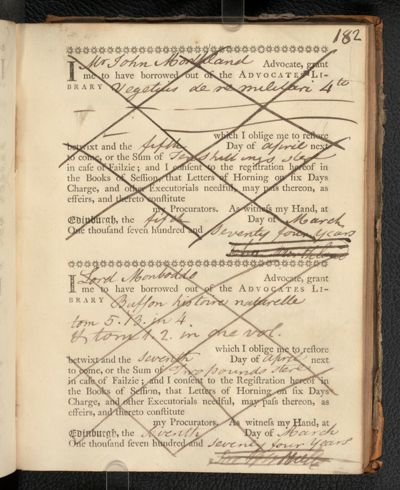 182
I Mr John Morthland Advocate, grant
me to have borrowed out of the ADVOCATES LI-
BRARY Vegetius de re militari 4to
which I oblige me to restore
betwixt and the fifth Day of April next
to come, or the Sum of Ten shillings ster
in case of Failzie; and I consent to the registration hereof in
the Books of Session, that Letters of Horning on six Days
Charge, and other Executorials needful, may pass thereon, as
effeirs, and thereto constitute
my Procurators. As witness my Hand, at
Edinburgh, the fifth Day of March
One thousand seven hundred and seventy four years
I Lord Monboddo Advocate, grant
me to have borrowed out of the ADVOCATES LI-
BRARY Buffon histoire naturelle
tom 5. 12. in 4.
& tom 1 2. in one vol.
which I oblige me to restore
betwixt and the seventh Day of April next
to come, or the Sum of Two pounds ster
in case of Failzie; and I consent to the Registration hereof in
the Books of Session, that Letters of Horning on six Days
Charge, and other Executorials needful, may pass thereon, as
effeirs, and thereto constitute
my Procurators. As witness my Hand, at
Edinburgh, the seventh Day of March
One thousand seven hundred and seventy four years